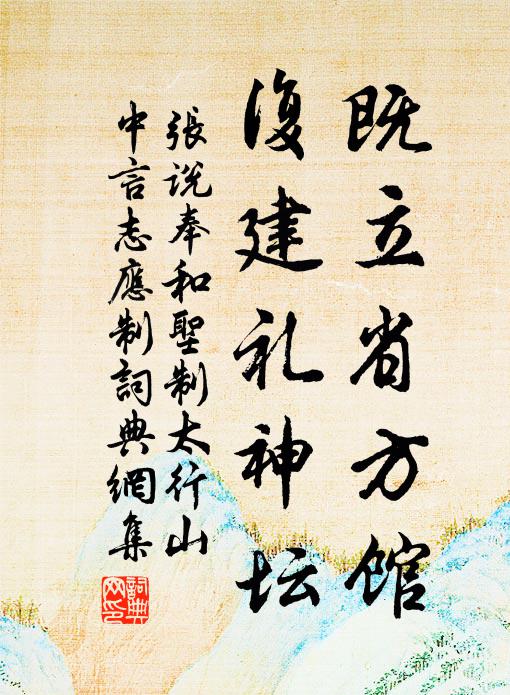 既立省方馆
復建礼神坛
張说奉和聖制太行山
中言志應制詞典網集
詞典網印